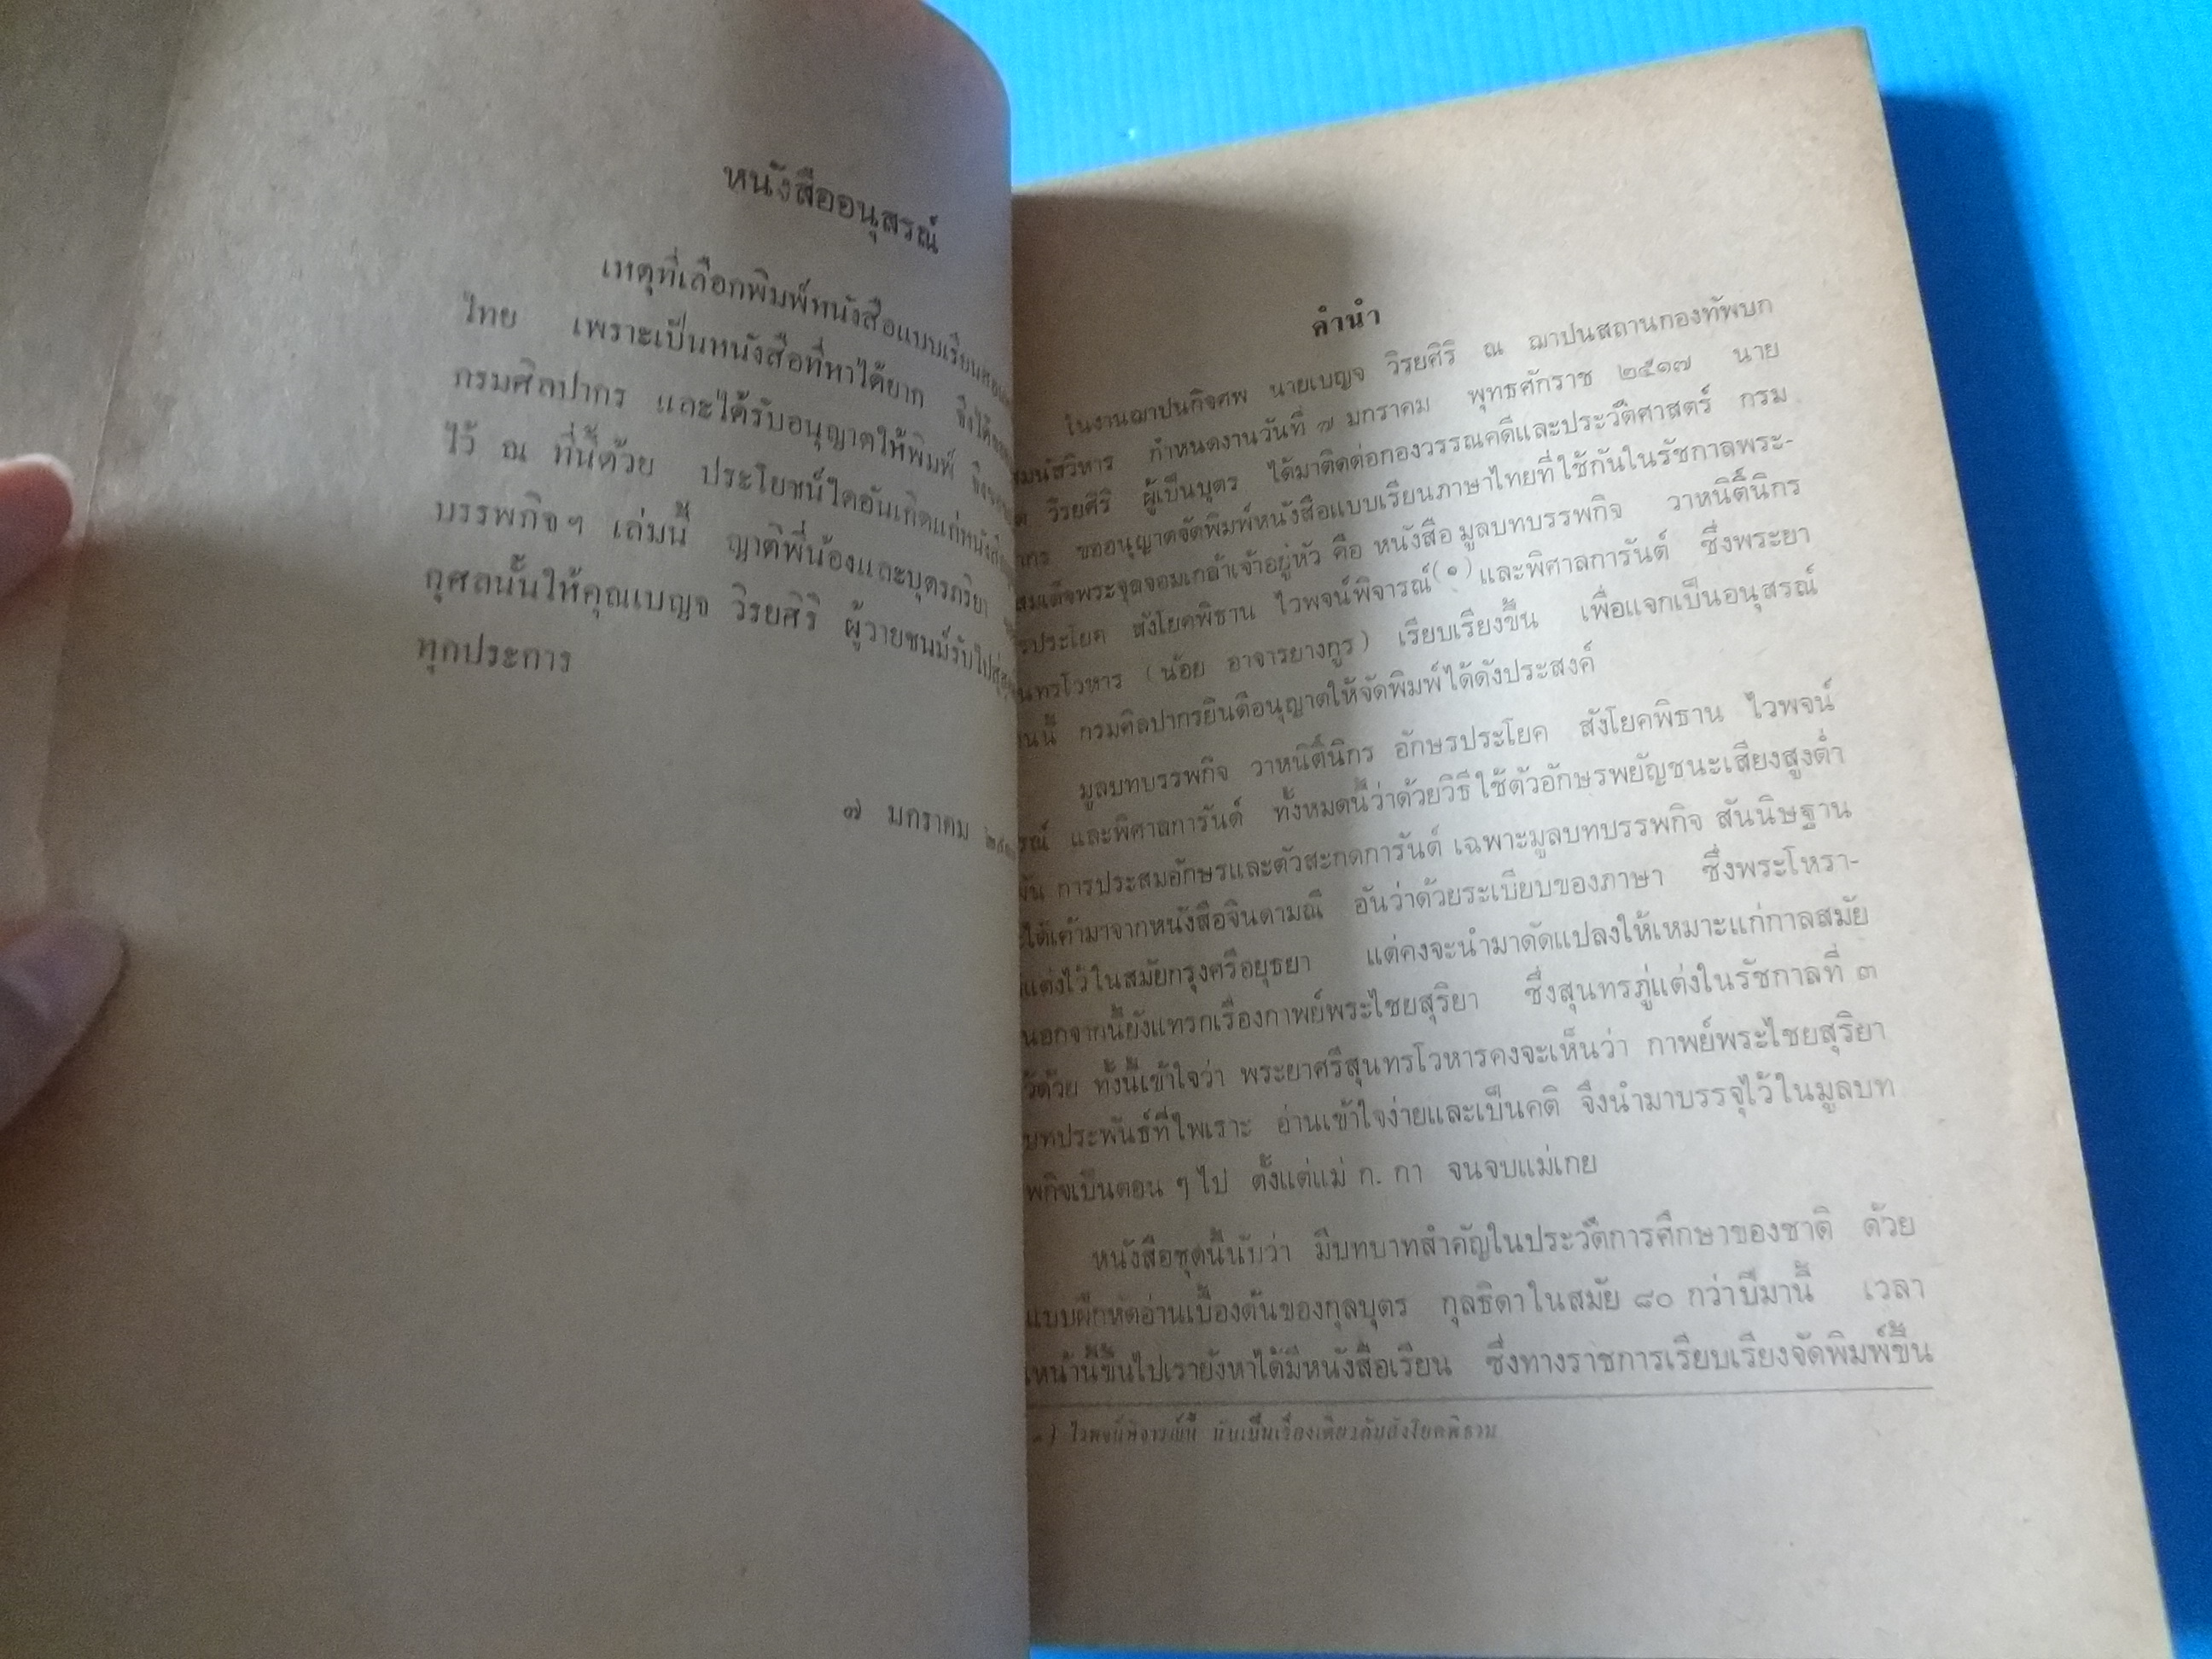 หนังสืออนุสรณ์
เหตุที่เลือกพิมพ์หนังสือแบบเรียน
ไทย เพราะเป็นหนังสือที่หาได้ยาก จึงได้
กรมศิลปากร และได้รับอนุญาตให้พิมพ์
ไว้ ณ ที่นี้ด้วย ประโยชน์ใดอันเกิดแก่
บรรพกิจฯ เล่มนี้ ญาติพี่น้องและบุตรภริยา
กุศลนั้นให้คุณเบญจ วิรยศิริ ผู้วายชนม์รับไป
ทุกประการ
๗ มกราคม
คำนำ
ในงานฌาปนกิจศพ นายเบญจ วิรยศิริ ณ ฌาปนสถานกองทัพบก
มนัสวิหาร กำหนดงานวันที่ ๗ มกราคม พุทธศักราช ๒๕๑๗ นาย
วิรยศิริ ผู้เป็นบุตร ได้มาติดต่อกองวรรณคดีและประวัติศาสตร์ กรม
ากร ขออนุญาตจัดพิมพ์หนังสือแบบเรียนภาษาไทยที่ใช้กันในรัชกาลพระ-
สมเด็จพระจุลจอมเกล้าเจ้าอยู่หัว คือ หนังสือมูลบทบรรพกิจ วาหนิติ์นิกร
รประโยค สังโยคพิธาน ไวพจน์พิจารณ์(๑) และพิศาลการันต์ ซึ่งพระยา
นทรโวหาร (น้อย อาจารยางกูร) เรียบเรียงขึ้น เพื่อแจกเป็นอนุสรณ์
นนี้ กรมศิลปากรยินดีอนุญาตให้จัดพิมพ์ได้ดังประสงค์
มูลบทบรรพกิจ วาหนิติ์นิกร อักษรประโยค สังโยคพิธาน ไวพจน์
รณ์ และพิศาลการันต์ ทั้งหมดนี้ว่าด้วยวิธีใช้ตัวอักษรพยัญชนะเสียงสูงต่ำ
การประสมอักษรและตัวสะกดการันต์ เฉพาะมูลบทบรรพกิจ สันนิษฐาน
ะได้เค้ามาจากหนังสือจินดามณี อันว่าด้วยระเบียบของภาษา ซึ่งพระโหรา-
แต่งไว้ในสมัยกรุงศรีอยุธยา แต่คงจะนำมาดัดแปลงให้เหมาะแก่กาลสมัย
นอกจากนี้ยังแทรกเรื่องกาพย์พระไชยสุริยา ซึ่งสุนทรภู่แต่งในรัชกาลที่ ๓
ว้ด้วย ทั้งนี้เข้าใจว่า พระยาศรีสุนทรโวหารคงจะเห็นว่า กาพย์พระไชยสุริยา
บทประพันธ์ที่ไพเราะ อ่านเข้าใจง่ายและเป็นคติ จึงนำมาบรรจุไว้ในมูลบท
พกิจเป็นตอน ๆ ไป ตั้งแต่แม่ ก. กา จนจบแม่เกย
หนังสือชุดนี้นับว่า มีบทบาทสำคัญในประวัติการศึกษาของชาติ ด้วย
แบบฝึกหัดอ่านเบื้องต้นของกุลบุตร กุลธิดาในสมัย ๘๐ กว่าปีมานี้ เวลา
หน้านี้ขึ้นไปเรายังหาได้มีหนังสือเรียน ซึ่งทางราชการเรียบเรียงจัดพิมพ์ขึ้น
๑) ไวพจน์พิจารณ์นี้ นับเป็นเรื่องเดียวกับสังโยคพิธาน